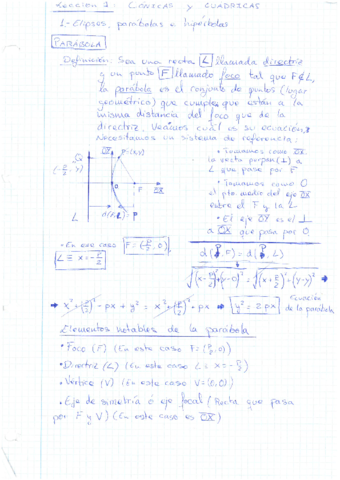 Lección 1: CÓNICAS Y CUÁDRICAS
1- Elipses, parábolas e hipérbolas
PARÁBOLA
Definición: Sea una recta L llamada directriz
y un punto F llamado foco tal que F∉L,
la parábola es el conjunto de puntos (lugar
geométrico) que cumplen que están a la
misma distancia del foco que de la
directriz. Veamos cuál es su ecuación,
Necesitamos un sistema de referencia:
• Tomamos como OX
la recta perpen(⊥) a
L que pasa por F
• Tomamos como O
el pto medio del eje OX
entre el F y la L
• El eje OY es el ⊥
a OX que pasa por O
Q
(-p/2, y)
OY
P(x,y)
O
F
OX
L
d(P,L)
P
• En ese caso F=(p/2, 0)
L ≡ x=-p/2
d(P,F) = d(P,L)
√(x-p/2)²+(y-0)² = √(x+p/2)²+(y-y)² →
→ x²+(p/2)²-px + y² = x²+(p/2)²+px → y²=2px
Ecuación
de la parábola
Elementos notables de la parábola
• Foco (F) (En este caso F=(p/2,0))
• Directriz (L) (En este caso L ≡ x=-p/2)
• Vértice (V) (En este caso V=(0,0))
• Eje de simetría ó eje focal (Recta que pasa
por F y V) (En este caso es OX)